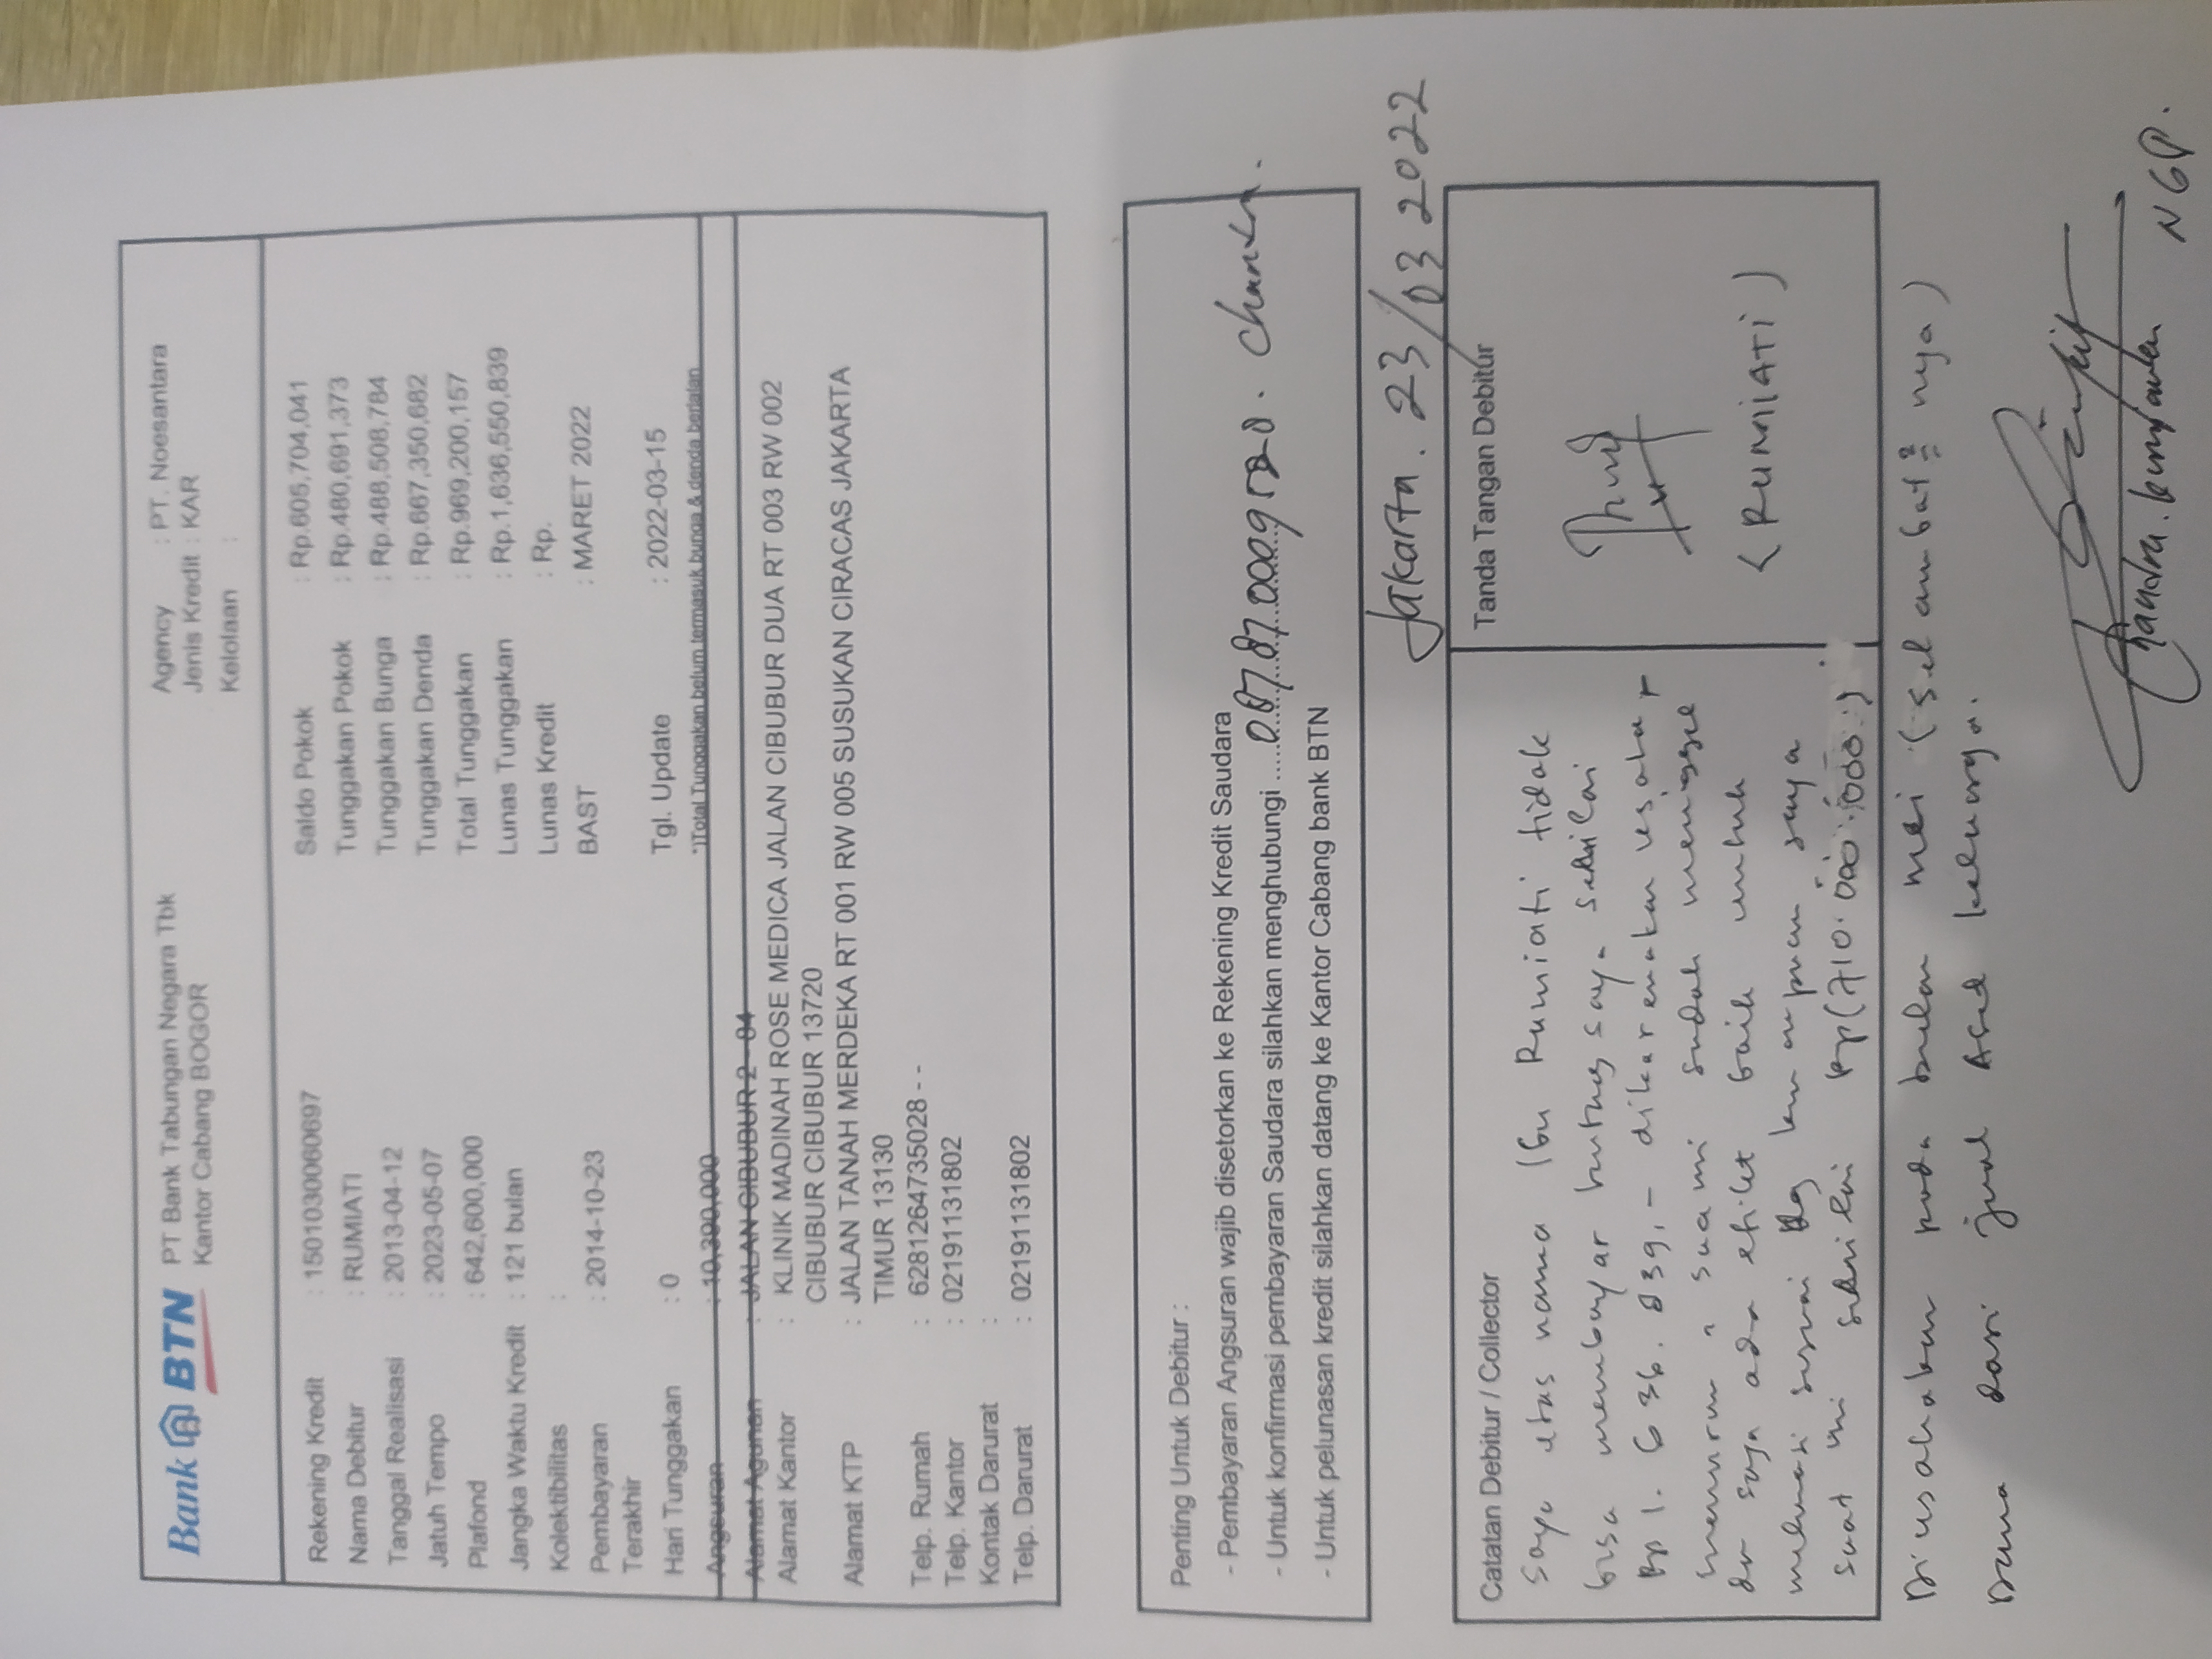 Bank BTN PT Bank Tabungan Negara Tbk
Kantor Cabang BOGOR
Agency : PT. Noesantara
Jenis Kredit : KAR
Kelolaan :
Rekening Kredit : 1501030060697
Nama Debitur : RUMIATI
Tanggal Realisasi : 2013-04-12
Jatuh Tempo : 2023-05-07
Plafond : 642,600,000
Jangka Waktu Kredit : 121 bulan
Kolektibilitas :
Pembayaran : 2014-10-23
Terakhir
Hari Tunggakan : 0
Angsuran : 10,390,000
Saldo Pokok : Rp.605,704,041
Tunggakan Pokok : Rp.480,691,373
Tunggakan Bunga : Rp.488,508,784
Tunggakan Denda : Rp.667,350,682
Total Tunggakan : Rp.969,200,157
Lunas Tunggakan : Rp.1,636,550,839
Lunas Kredit : Rp.
BAST : MARET 2022
Tgl. Update : 2022-03-15
*)Total Tunggakan belum termasuk bunga & denda berjalan
Alamat Agunan : JALAN CIBUBUR 2 - 84
Alamat Kantor : KLINIK MADINAH ROSE MEDICA JALAN CIBUBUR DUA RT 003 RW 002
CIBUBUR CIBUBUR 13720
Alamat KTP : JALAN TANAH MERDEKA RT 001 RW 005 SUSUKAN CIRACAS JAKARTA
TIMUR 13130
Telp. Rumah : 6281264735028 - -
Telp. Kantor : 02191131802
Kontak Darurat :
Telp. Darurat : 02191131802
Penting Untuk Debitur :
- Pembayaran Angsuran wajib disetorkan ke Rekening Kredit Saudara
- Untuk konfirmasi pembayaran Saudara silahkan menghubungi
- Untuk pelunasan kredit silahkan datang ke Kantor Cabang bank BTN
Jakarta. 23/03 2022
Catatan Debitur / Collector
Saya atas nama Ibu Rumiati tidak
bisa membayar hutang saya
Rp 1. 636. 839,- dikarenakan usaha
menurun, suami sudah meninggal
dr saya ada etiket baik untuk
melunasi sesuai dg kemampuan saya
saat ini Rp(710.000.000.)
Diusahakan pada bulan mei (selambat² nya)
Dana dari jual Aset keluarga.
Tanda Tangan Debitur
(RUMIATI)
NGP.